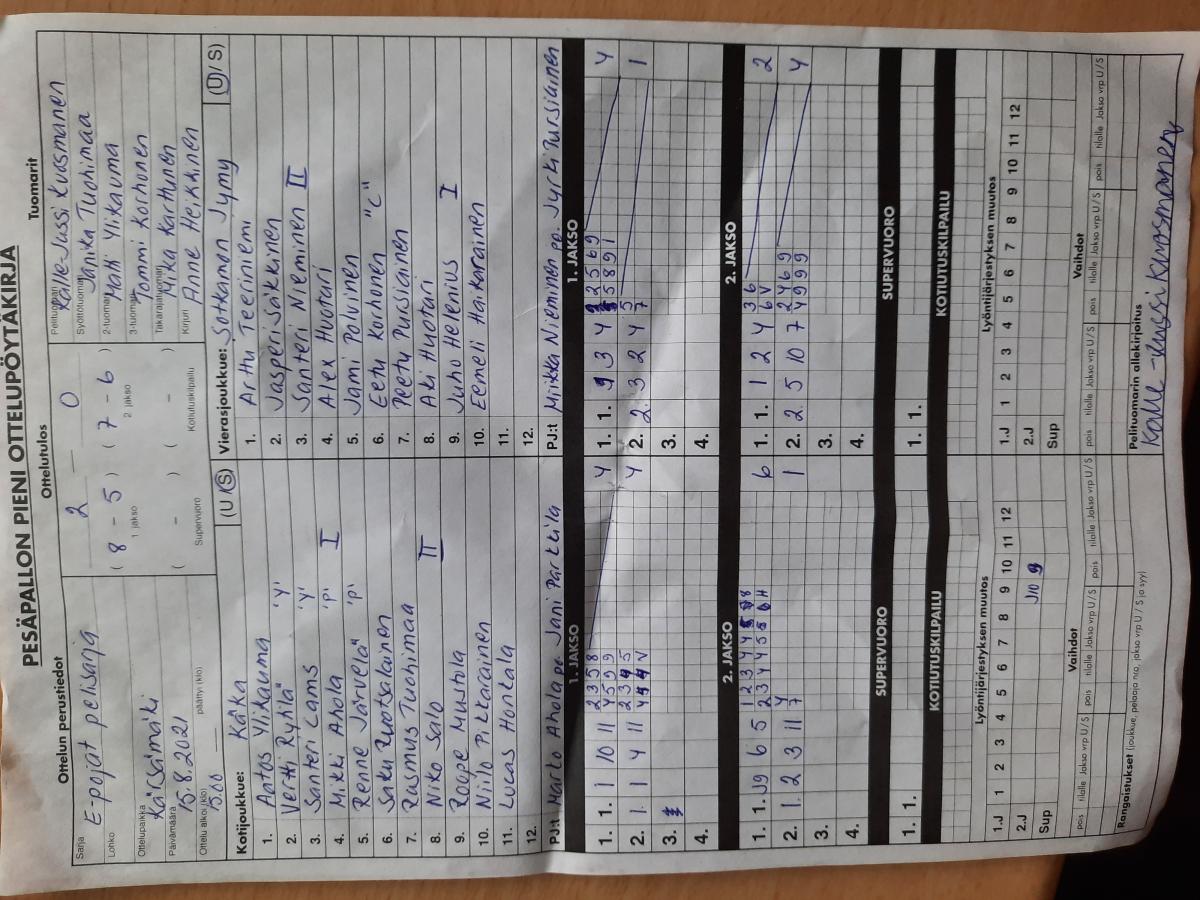 PESÄPALLON PIENI OTTELUPÖYTÄKIRJA
Ottelun perustiedot
Sarja E-pojat pelisarja
Lohko
Ottelupaikka Kärsämäki
Päivämäärä 15.8.2021
Ottelu alkoi (klo) 15.00 päättyi (klo)
Ottelutulos
2 — 0
( 8 - 5 ) ( 7 - 6 )
1 jakso 2 jakso
( - ) ( - )
Supervuoro Kotiutuskilpailu
Tuomarit
Pelituomari Kalle-Jussi Kuosmanen
Syöttötuomari Janika Tuohimaa
2-tuomari Matti Ylikauma
3-tuomari Tommi Korhonen
Takarajatuomari Mika Karttunen
Kirjuri Anne Heikkinen
Kotijoukkue: KäKa (U/S)
1. Aatos Ylikauma 'Y'
2. Vertti Ryhilä 'Y'
3. Santeri Lams 'Y'
4. Mikki Ahola 'P' I
5. Renne Järvelä 'P'
6. Saku Ruotsalainen
7. Rasmus Tuohimaa
8. Niko Salo II
9. Roope Mustola
10. Niilo Pikkarainen
11. Lucas Hontala
12.
PJ:t Marko Ahola pp. Jani Parkkila
Vierasjoukkue: Sotkamon Jymy (U/S)
1. Arttu Teeriniemi
2. Jasperi Säkkinen
3. Santeri Nieminen II
4. Alex Huotari
5. Jami Polvinen
6. Eetu Korhonen "C"
7. Peetu Pursiainen
8. Aki Huotari
9. Juho Helenius I
10. Eemeli Haikarainen
11.
12.
PJ:t Miikka Nieminen pp. Jyrki Pursiainen
1. JAKSO
1. 1. 1 10 11 2 3 5 8 4
4 5 9 9
2. 1. 1 4 11 2 3 4 5 4
3.
4.
1. JAKSO
1. 1. 9 3 4 2 5 6 9 4
5 8 9 1
2. 2. 3 2 4 5 1
7
3.
4.
2. JAKSO
1. 1. J9 6 5 1 2 3 4 4 6
2 3 4 4 5
2. 1. 2 3 11 4 1
7
3.
4.
2. JAKSO
1. 1. 1 2 4 3 6 2
6 V
2. 2. 5 10 7 2 4 6 9 4
4 9 9 9
3.
4.
SUPERVUORO
1. 1.
SUPERVUORO
1. 1.
KOTIUTUSKILPAILU
KOTIUTUSKILPAILU
Lyöntijärjestyksen muutos
1.J 1 2 3 4 5 6 7 8 9 10 11 12
2.J J10 9
Sup
Lyöntijärjestyksen muutos
1.J 1 2 3 4 5 6 7 8 9 10 11 12
2.J
Sup
Vaihdot
pois tilalle Jakso vrp U / S pois tilalle Jakso vrp U / S pois tilalle Jakso vrp U / S
Vaihdot
pois tilalle Jakso vrp U / S pois tilalle Jakso vrp U / S pois tilalle Jakso vrp U / S
Rangaistukset (joukkue, pelaaja nro, jakso vrp U / S ja syy)
Pelituomarin allekirjoitus
Kalle-Jussi Kuosmanen